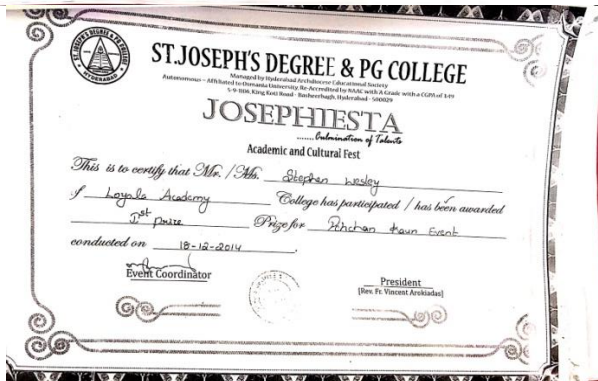 ST. JOSEPH'S DEGREE & PG COLLEGE
HYDERABAD
ST.JOSEPH'S DEGREE & PG COLLEGE
Managed by Hyderabad Archdiocese Educational Society
Autonomous - Affiliated to Osmania University, Re-Accredited by NAAC with A Grade with a CGPA of 3.49
5-9-1106, King Koti Road - Basheerbagh, Hyderabad - 500029
JOSEPHIESTA
.......Culmination of Talents
Academic and Cultural Fest
This is to certify that Mr. / Ms. Stephen Wesley
of Loyola Academy College has participated / has been awarded
Ist prize Prize for Pehchan Kaun Event
conducted on 18-12-2014.
Event Coordinator
President
[Rev. Fr. Vincent Arokiadas]